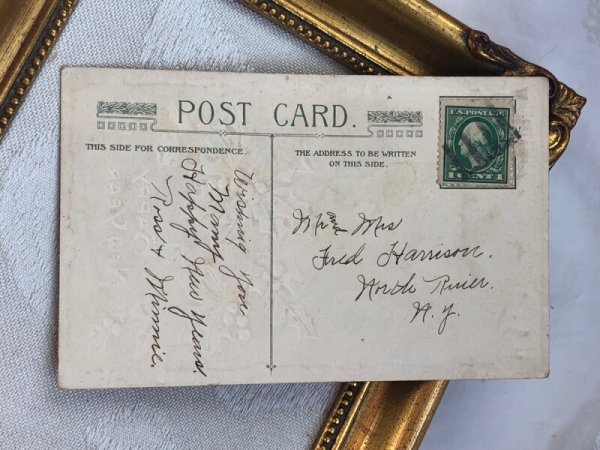 POST CARD.
THIS SIDE FOR CORRESPONDENCE.
THE ADDRESS TO BE WRITTEN
ON THIS SIDE.
U.S. POSTAGE
1 CENT 1
Wishing you
Many
Happy New Years.
Ross & Minnie.
Mr and Mrs
Fred Harrison.
North River.
N.Y.